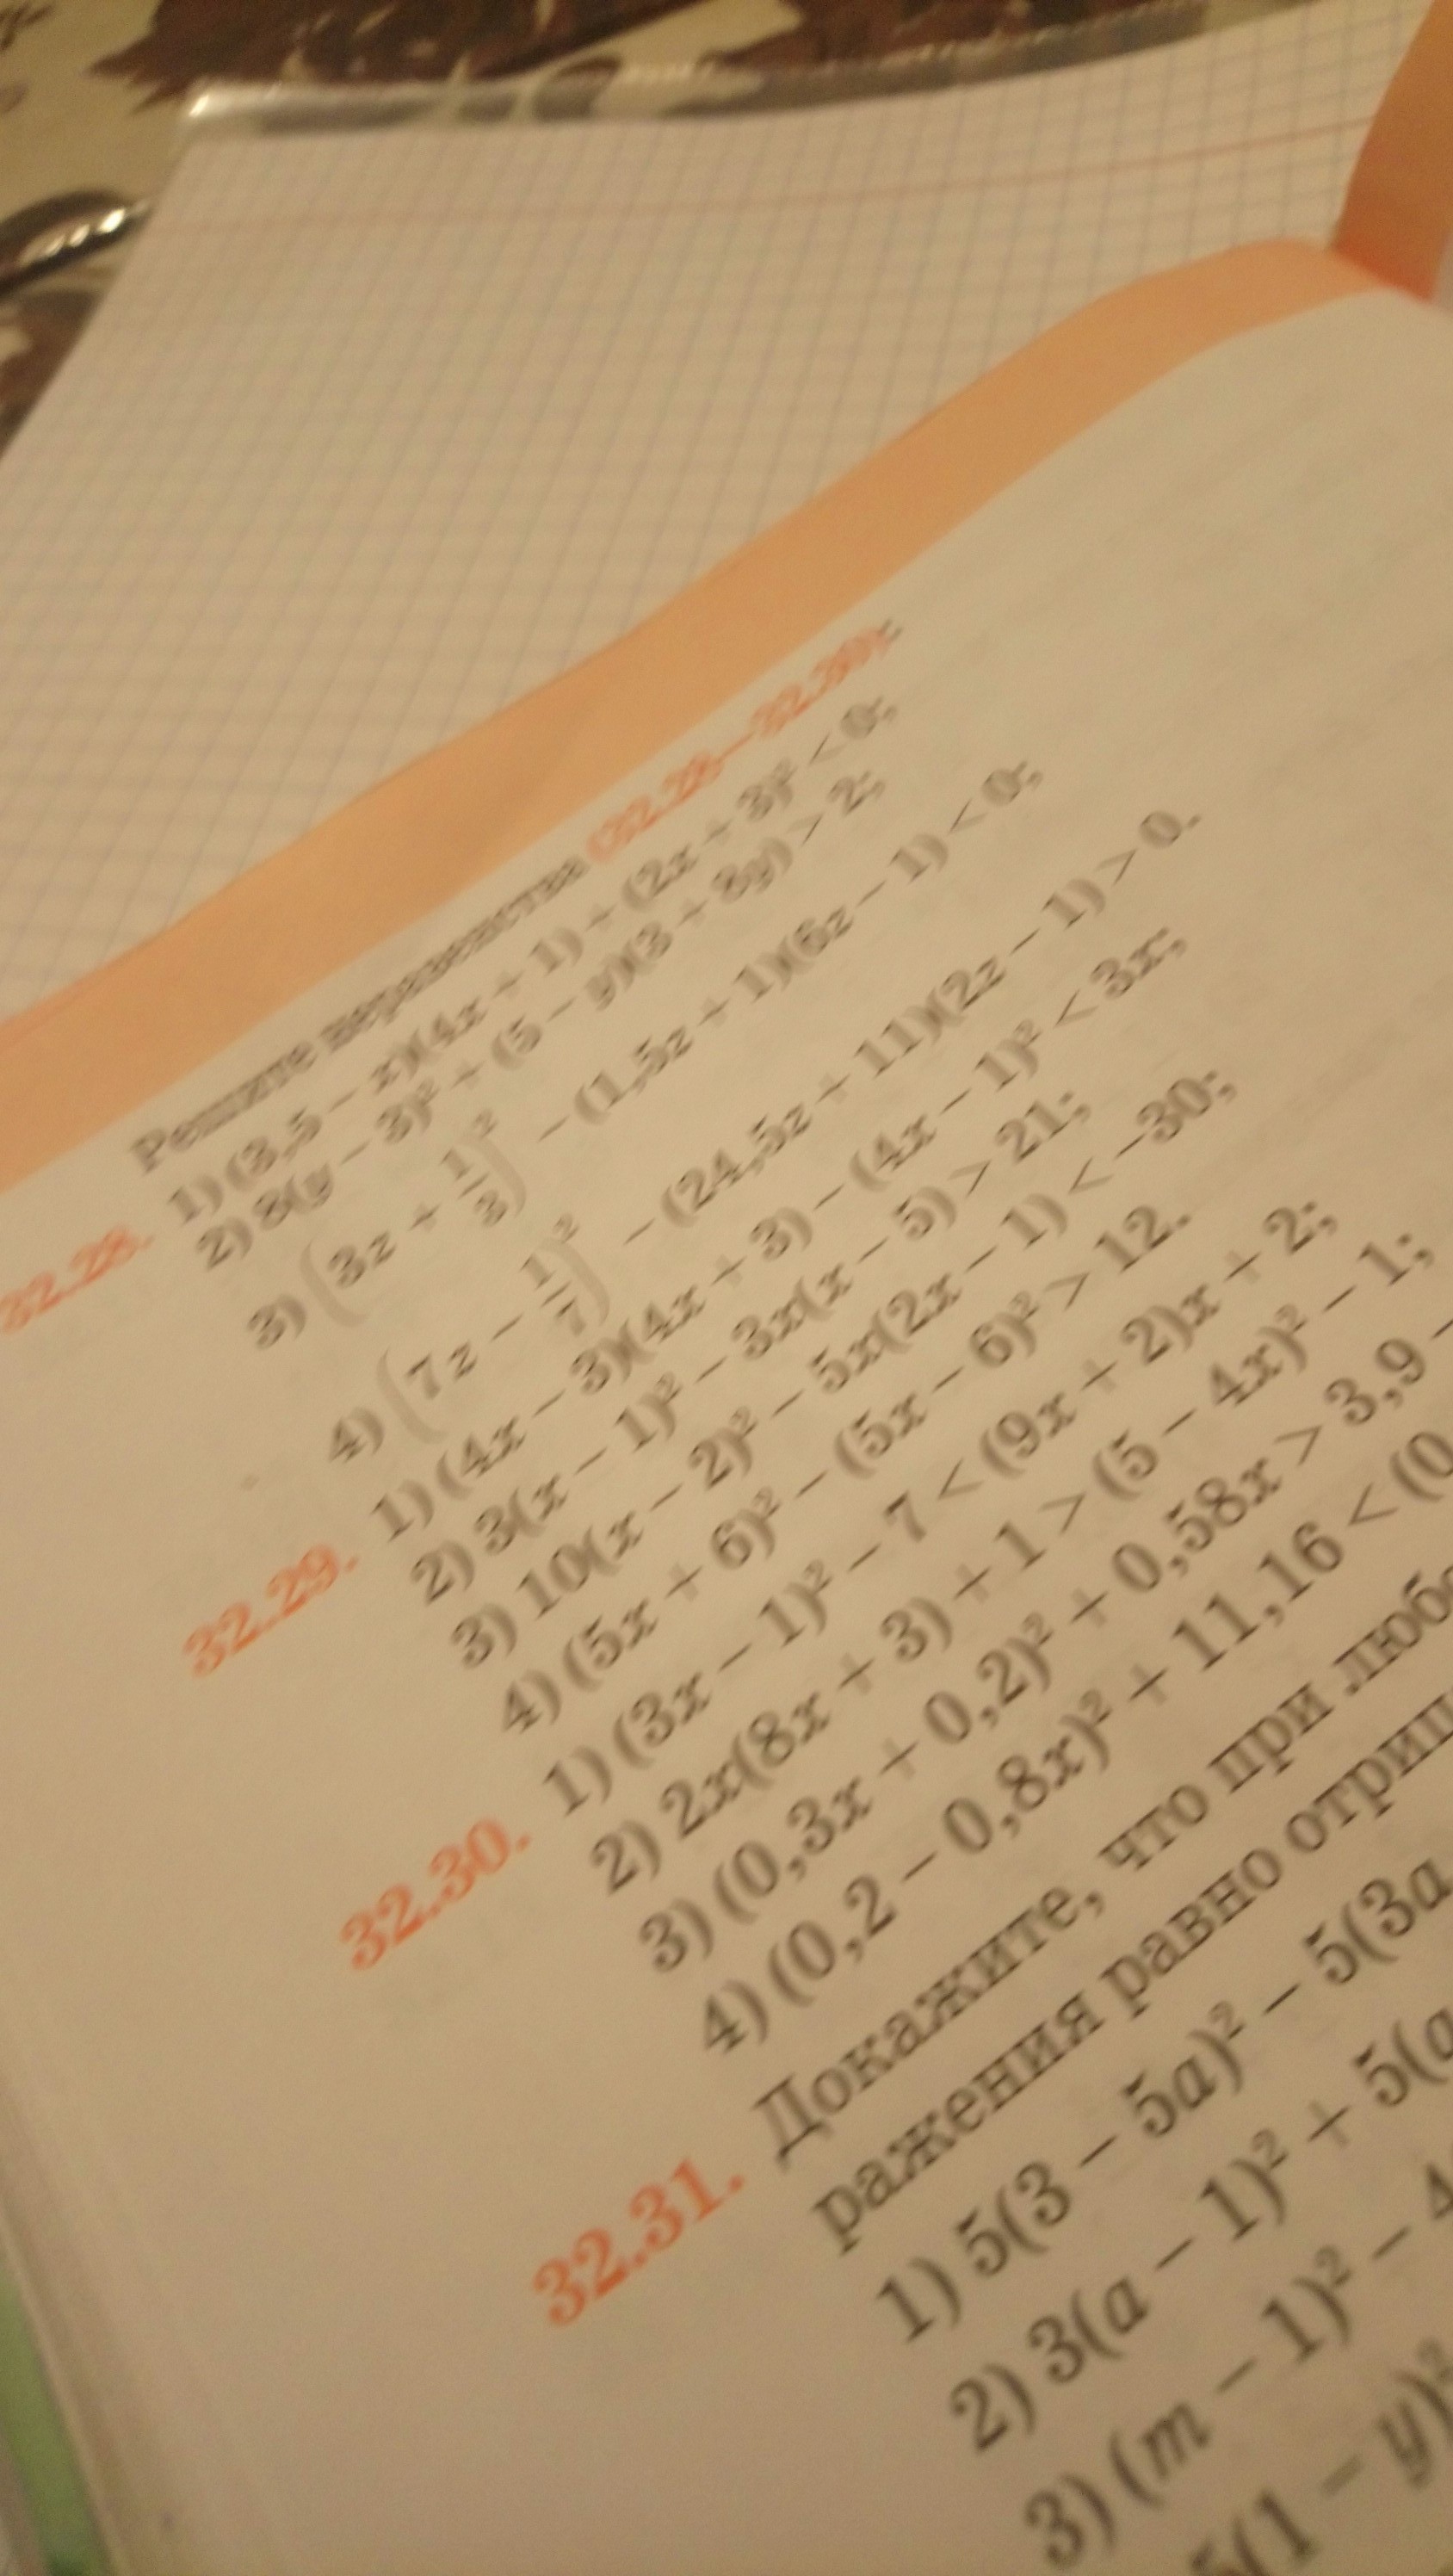 Решите неравенства (32.28—32.30):
32.28. 1) (3,5 − x)(4x + 1) + (2x + 3)² < 0;
2) 8(y − 3)² + (5 − y)(3 + 8y) > 2;
3) (3z + 1/3)² − (1,5z + 1)(6z − 1) < 0;
4) (7z − 1/7)² − (24,5z + 11)(2z − 1) > 0.
32.29. 1) (4x − 3)(4x + 3) − (4x − 1)² < 3x;
2) 3(x − 1)² − 3x(x − 5) > 21;
3) 10(x − 2)² − 5x(2x − 1) < −30;
4) (5x + 6)² − (5x − 6)² > 12.
32.30. 1) (3x − 1)² − 7 < (9x + 2)x + 2;
2) 2x(8x + 3) + 1 > (5 − 4x)² − 1;
3) (0,3x + 0,2)² + 0,58x > 3,9 −
4) (0,2 − 0,8x)² + 11,16 < (0
32.31. Докажите, что при любо
ражения равно отриц
1) 5(3 − 5a)² − 5(3a
2) 3(a − 1)² + 5(a
3) (m − 1)² − 4
5(1 − y)²